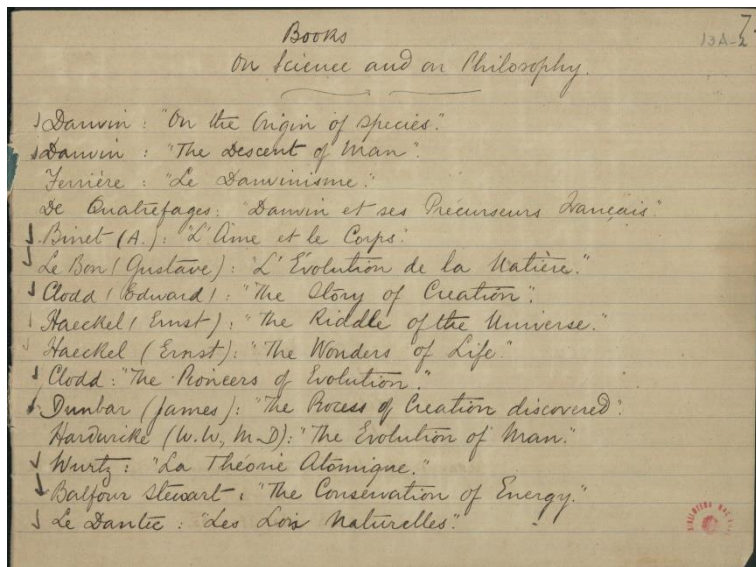 Books
7.
13A-2
On Science and on Philosophy.
Darwin : "On the Origin of species."
Darwin : "The Descent of Man".
Ferrière : "Le Darwinisme."
De Quatrefages: "Darwin et ses Précurseurs Français".
Binet (A.) : "L'Âme et le Corps".
Le Bon (Gustave) : "L'Évolution de la Matière."
Clodd (Edward) : "The Story of Creation".
Haeckel (Ernst) : "The Riddle of the Universe."
Haeckel (Ernst) : "The Wonders of Life."
Clodd : "The Pioneers of Evolution."
Dunbar (James) : "The Process of Creation discovered".
Hardwicke (W.W., M.D) : "The Evolution of Man."
Wurtz : "La Théorie Atomique."
Balfour Stewart : "The Conservation of Energy."
Le Dantec : "Les Lois Naturelles".